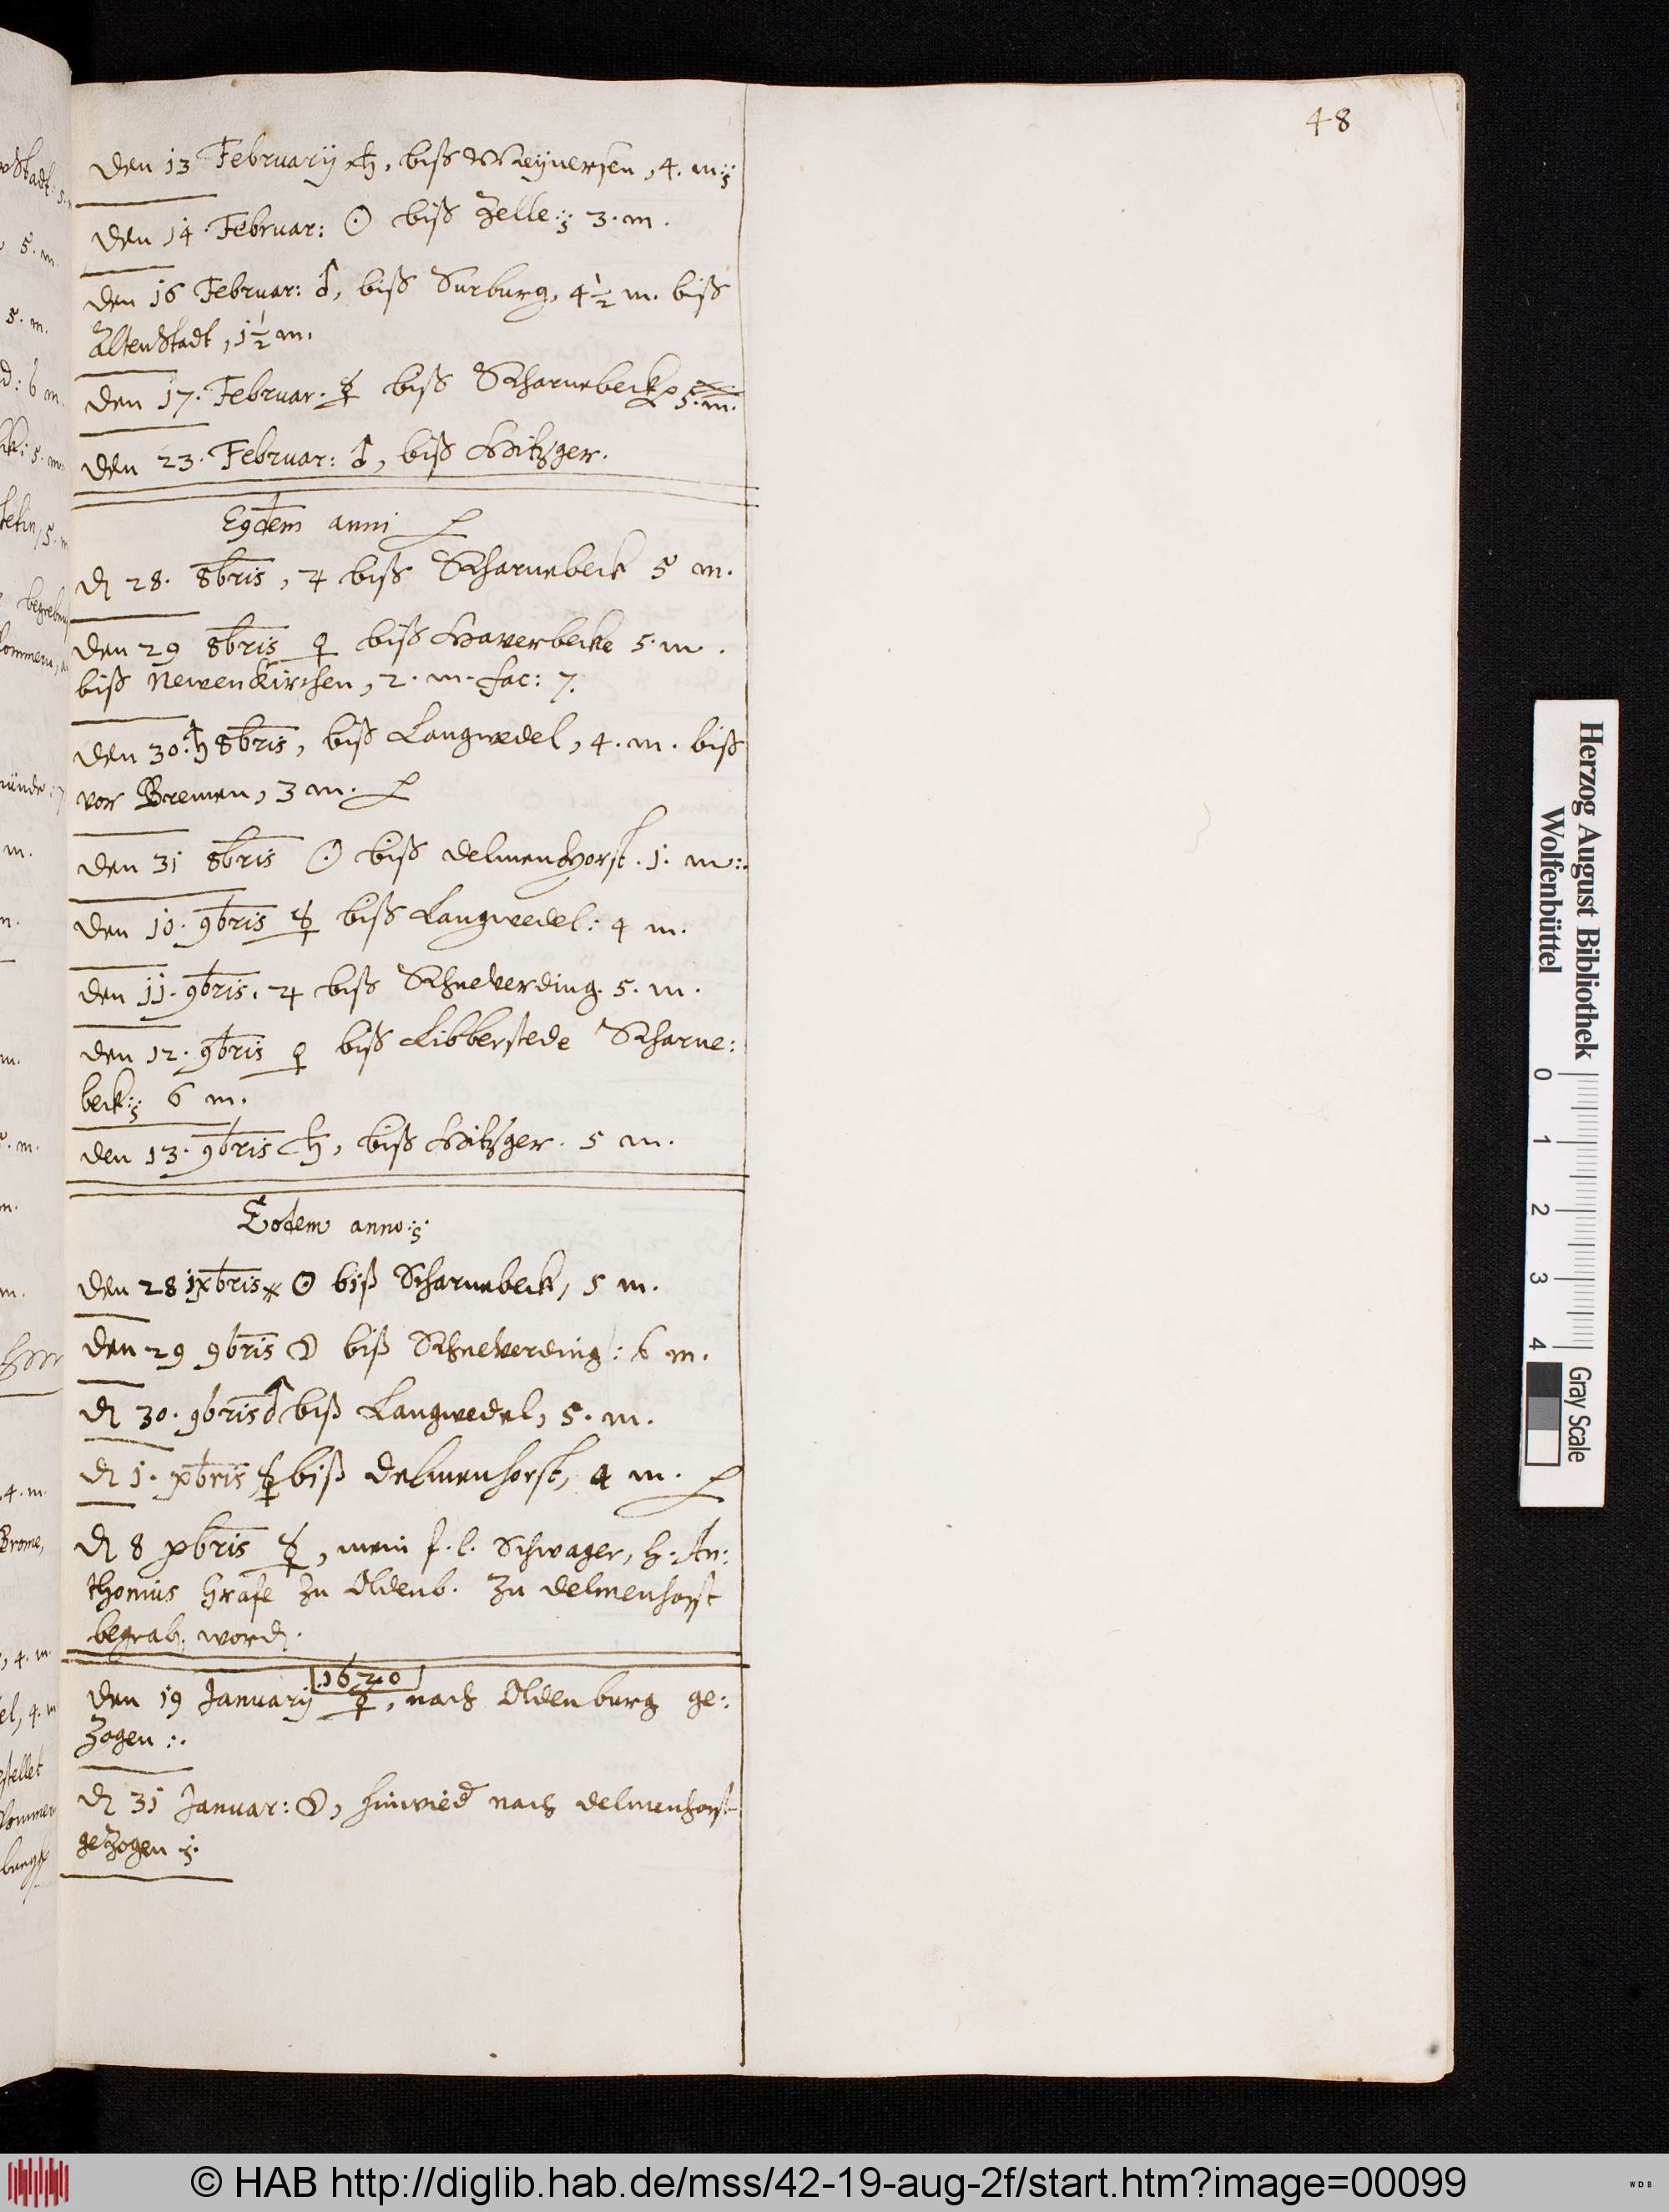 48
den 13 Februarij ♄, biß Meynersen, 4. m:
den 14 Februar: ☉ biß Zelle: 3. m.
den 16 Februar: ♂, biß Surburg, 4 1/2 m. biß
AltenStadt, 1 1/2 m.
den 17. Februar. ☿ biß Scharnebeck 5. m.
den 23. Februar: ♂, biß Hitzger.
Eiusdem anni
dē 28. 8bris, ♃ biß Scharnebeck 5 m.
den 29 8bris ♀ biß Haverbecke 5. m.
biß Newenkirchen, 2. m. fac: 7.
den 30. ♄ 8bris, biß Langwedel, 4. m. biß
vor Bremen, 3 m.
den 31 8bris ☉ biß delmenhorst. 1. m:
den 10. 9bris ☿ biß Langwedel: 4 m.
den 11. 9bris. ♃ biß Schneverding. 5. m.
den 12. 9bris ♀ biß Libberstede Scharne:
beck: 6 m.
den 13. 9bris ♄, biß Hitzger. 5 m.
Eodem anno:
den 28 ☉ biß Scharnebeck, 5 m.
den 29 9bris ☽ biß Schneverding: 6 m.
dē 30. 9bris ♂ biß Langwedel, 5. m.
dē 1. xbris ☿ biß delmenhorst, 4 m.
dē 8 xbris ☿, mein f. l. Schwager, H: An:
thonius Grafe zu Oldenb. zu delmenhorst
begrab. word.
1620
den 19 Januarij ☿, nach Oldenburg ge:
zogen :.
dē 31 Januar: ☽, hinwied nach delmenhorst
gezogen
Herzog August Bibliothek
Wolfenbüttel
0 1 2 3 4
Gray Scale
© HAB http://diglib.hab.de/mss/42-19-aug-2f/start.htm?image=00099
WDB